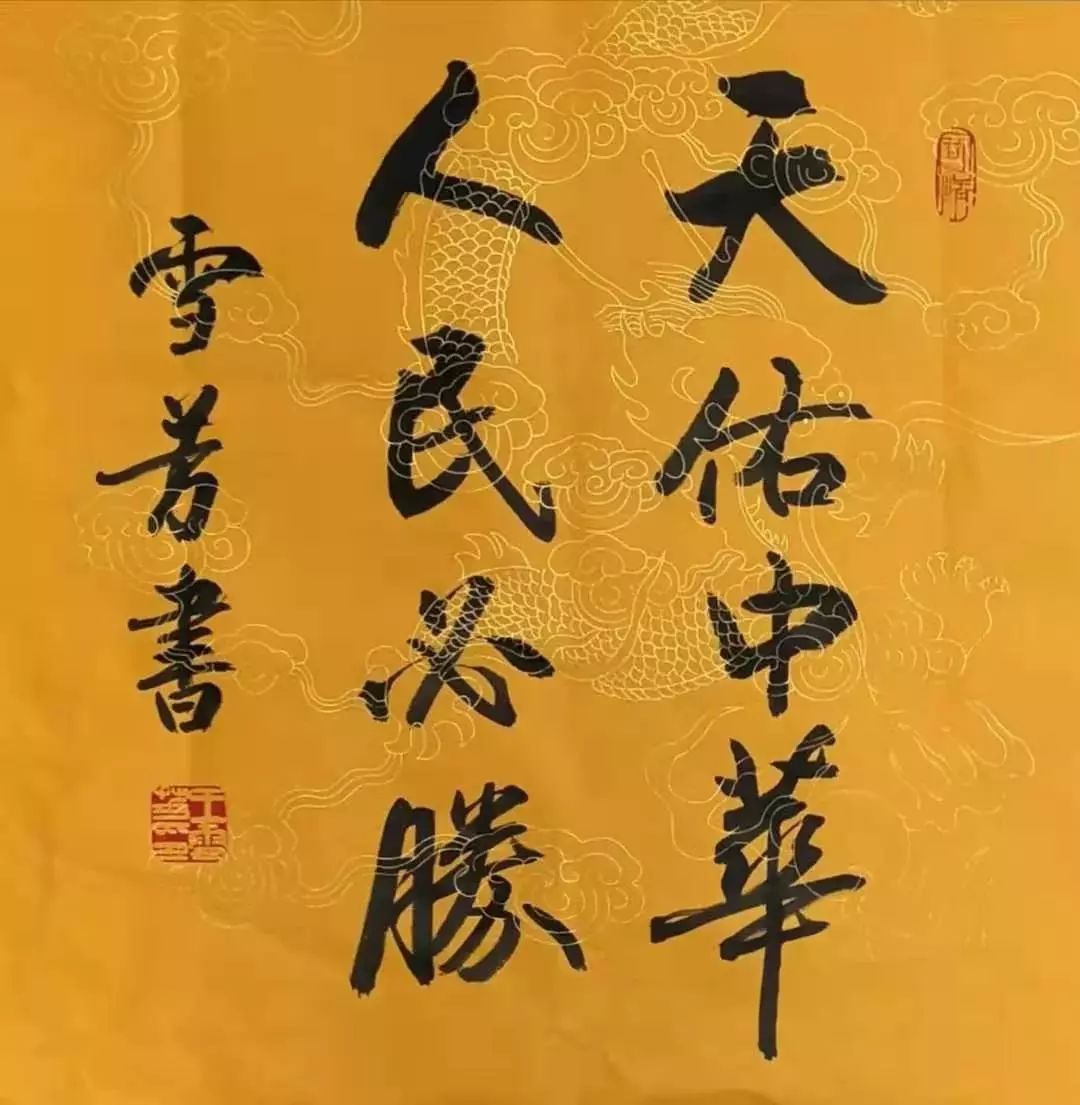 天佑中華
人民必勝
雪芳書